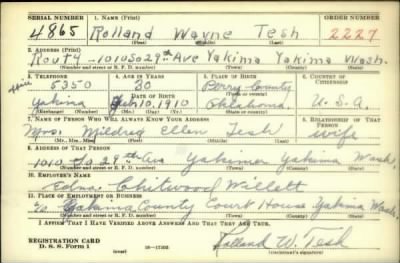 SERIAL NUMBER 1. NAME (Print) ORDER NUMBER
4865 Rolland Wayne Tesh 2227
(First) (Middle) (Last)
2. ADDRESS (Print)
Route 4 - 1010 So 29th Ave Yakima Yakima Wash.
(Number and street or R. F. D. number) (Town) (County) (State)
3. TELEPHONE 4. AGE IN YEARS 5. PLACE OF BIRTH 6. COUNTRY OF CITIZENSHIP
5350 30 Perry County
DATE OF BIRTH
Yakima Feb 10, 1910 Oklahoma. U.S.A.
(Exchange) (Mo.) (Day) (Yr.) (State or country)
7. NAME OF PERSON WHO WILL ALWAYS KNOW YOUR ADDRESS 8. RELATIONSHIP OF THAT PERSON
Mrs. Mildred Ellen Tesh wife
(Mr., Mrs., Miss) (First) (Middle) (Last)
9. ADDRESS OF THAT PERSON
1010 So 29th Ave Yakima Yakima Wash.
(Number and street or R. F. D. number) (Town) (County) (State)
10. EMPLOYER'S NAME
Edna Chitwood Willett
11. PLACE OF EMPLOYMENT OR BUSINESS
Yakima County Court House Yakima Wash.
(Number and street or R. F. D. number) (Town) (County) (State)
I AFFIRM THAT I HAVE VERIFIED ABOVE ANSWERS AND THAT THEY ARE TRUE.
REGISTRATION CARD
D. S. S. Form 1 (over) 16-17105 Rolland W. Tesh
(Registrant's signature)